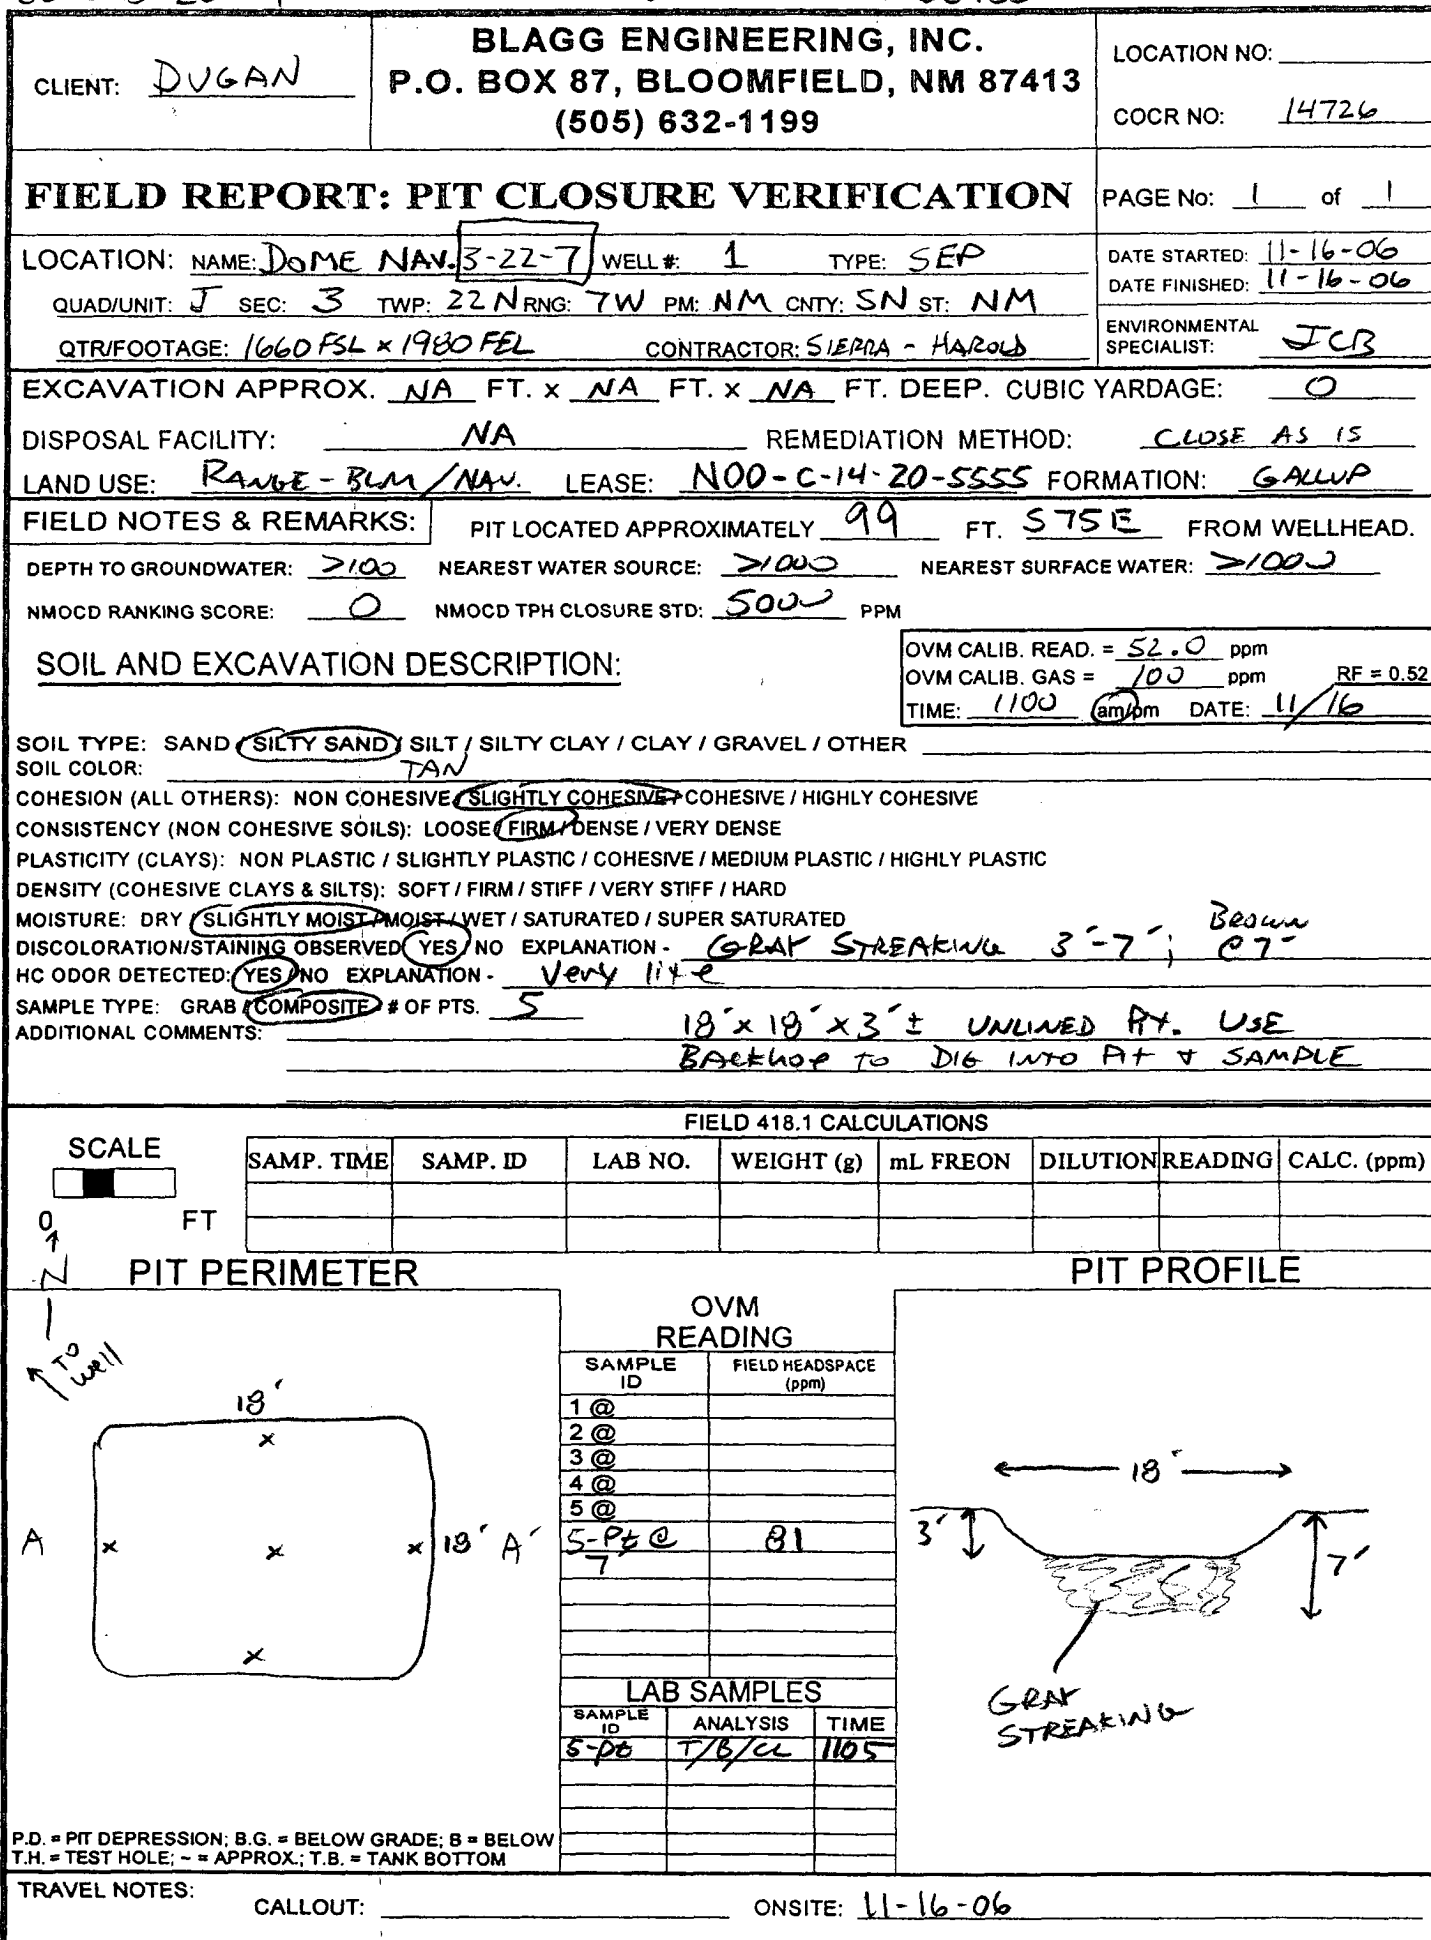 BLAGG ENGINEERING, INC.
P.O. BOX 87, BLOOMFIELD, NM 87413
(505) 632-1199
CLIENT: DUGAN
LOCATION NO:
COCR NO: 14726
FIELD REPORT: PIT CLOSURE VERIFICATION
PAGE No: 1 of 1
LOCATION: NAME: DOME NAV. 3-22-7 WELL #: 1 TYPE: SEP
QUAD/UNIT: J SEC: 3 TWP: 22N RNG: 7W PM: NM CNTY: SN ST: NM
QTR/FOOTAGE: 1660 FSL x 1980 FEL CONTRACTOR: SIERRA - HAROLD
DATE STARTED: 11-16-06
DATE FINISHED: 11-16-06
ENVIRONMENTAL
SPECIALIST: JCB
EXCAVATION APPROX. NA FT. x NA FT. x NA FT. DEEP. CUBIC YARDAGE: 0
DISPOSAL FACILITY: NA REMEDIATION METHOD: CLOSE AS IS
LAND USE: RANGE - BLM / NAV. LEASE: N00-C-14-20-5555 FORMATION: GALLUP
FIELD NOTES & REMARKS: PIT LOCATED APPROXIMATELY 99 FT. S75E FROM WELLHEAD.
DEPTH TO GROUNDWATER: >100 NEAREST WATER SOURCE: >1000 NEAREST SURFACE WATER: >1000
NMOCD RANKING SCORE: 0 NMOCD TPH CLOSURE STD: 5000 PPM
SOIL AND EXCAVATION DESCRIPTION:
OVM CALIB. READ. = 52.0 ppm
OVM CALIB. GAS = 100 ppm RF = 0.52
TIME: 1100 am/pm DATE: 11/16
SOIL TYPE: SAND / SILTY SAND / SILT / SILTY CLAY / CLAY / GRAVEL / OTHER
SOIL COLOR: TAN
COHESION (ALL OTHERS): NON COHESIVE / SLIGHTLY COHESIVE / COHESIVE / HIGHLY COHESIVE
CONSISTENCY (NON COHESIVE SOILS): LOOSE / FIRM / DENSE / VERY DENSE
PLASTICITY (CLAYS): NON PLASTIC / SLIGHTLY PLASTIC / COHESIVE / MEDIUM PLASTIC / HIGHLY PLASTIC
DENSITY (COHESIVE CLAYS & SILTS): SOFT / FIRM / STIFF / VERY STIFF / HARD
MOISTURE: DRY / SLIGHTLY MOIST / MOIST / WET / SATURATED / SUPER SATURATED
DISCOLORATION/STAINING OBSERVED: YES / NO EXPLANATION - GRAY STREAKING 3'-7'; BROWN @ 7'
HC ODOR DETECTED: YES / NO EXPLANATION - Very lite
SAMPLE TYPE: GRAB / COMPOSITE # OF PTS. 5
ADDITIONAL COMMENTS: 18' x 18' x 3' ± UNLINED Pit. USE
BACKHOE TO DIG INTO Pit & SAMPLE
FIELD 418.1 CALCULATIONS
SCALE
SAMP. TIME SAMP. ID LAB NO. WEIGHT (g) mL FREON DILUTION READING CALC. (ppm)
0 FT
N
PIT PERIMETER
PIT PROFILE
TO well
OVM
READING
SAMPLE ID FIELD HEADSPACE (ppm)
1 @
2 @
3 @
4 @
5 @
5-Pt @ 7 81
18'
A
18' A'
18'
3'
7'
GRAY
STREAKING
LAB SAMPLES
SAMPLE ID ANALYSIS TIME
5-pt T/B/CL 1105
P.D. = PIT DEPRESSION; B.G. = BELOW GRADE; B = BELOW
T.H. = TEST HOLE; ~ = APPROX.; T.B. = TANK BOTTOM
TRAVEL NOTES:
CALLOUT: ONSITE: 11-16-06